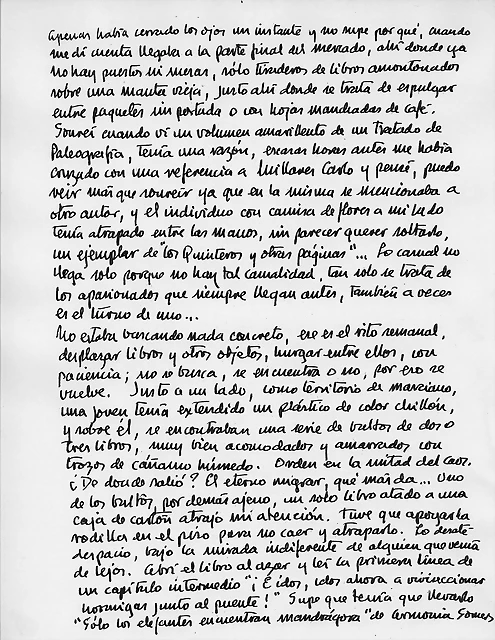 Apenas había cerrado los ojos un instante y no supe por qué, cuando
me di cuenta llegaba a la parte final del mercado, ahí donde ya
no hay puestos ni mesas, sólo tiraderos de libros amontonados
sobre una manta vieja, justo ahí donde se trata de espulgar
entre paquetes sin portada o con hojas manchadas de café.
Sonreí cuando vi un volumen amarillento de un Tratado de
Paleografía, tenía una razón, escasas horas antes me había
cruzado con una referencia a Millares Carlo y pensé, puedo
reír más que sonreír ya que en la misma se mencionaba a
otro autor, y el individuo con camisa de flores a mi lado
tenía atrapado entre las manos, sin parecer querer soltarlo,
un ejemplar de "los Quinteros y otras páginas"... Lo casual no
llega solo porque no hay tal casualidad, tan solo se trata de
los apasionados que siempre llegan antes, también a veces
es el turno de uno...
No estaba buscando nada concreto, ese es el rito semanal,
desplazar libros y otros objetos, hurgar entre ellos, con
paciencia; no se busca, se encuentra o no, por eso se
vuelve. Justo a un lado, como territorio de marciano,
una joven tenía extendido un plástico de color chillón,
y sobre él, se encontraban una serie de bultos de dos o
tres libros, muy bien acomodados y amarrados con
trozos de cáñamo húmedo. Orden en la mitad del caos.
¿De dónde salió? El eterno migrar, qué más da... Uno
de los bultos, por demás ajeno, un solo libro atado a una
caja de cartón atrajo mi atención. Tuve que apoyar la
rodilla en el piso para no caer y atraparlo. Lo desaté
despacio, bajo la mirada indiferente de alguien que venía
de lejos. Abrí el libro al azar y leí la primera línea de
un capítulo intermedio "¡E idos, idos ahora a viviseccionar
hormigas junto al puente!" Supe que tenía que llevarlo
"Sólo los elefantes encuentran mandrágora" de Armonía Somers